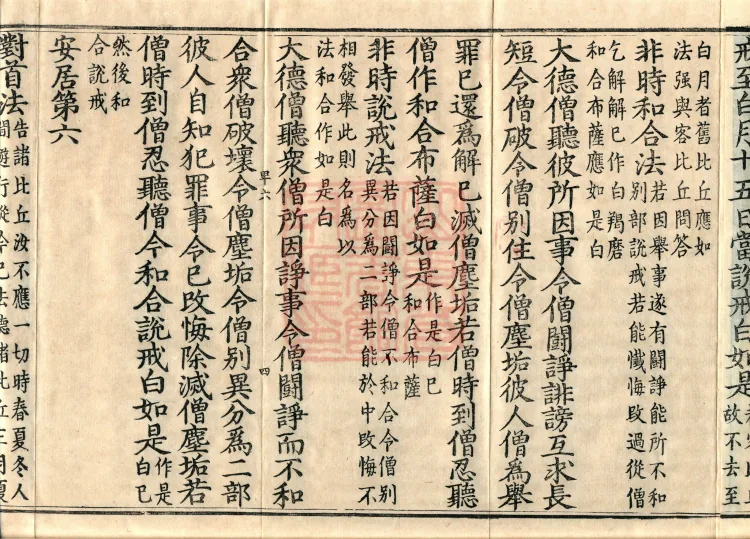 戒至白月十五日當說戒白如是
故不去至
白月者舊比丘應如
法强與客比丘問答
非時和合法
若因舉事遂有鬪諍能所不和
別部說戒若能懺悔改過從僧
乞解解已作白羯磨
和合布薩應如是白
大德僧聽彼所因事令僧鬪諍誹謗互求長
短令僧破令僧別住令僧塵垢彼人僧爲舉
罪已還爲解已滅僧塵垢若僧時到僧忍聽
僧作和合布薩白如是
作是白已
和合布薩
非時說戒法
若因鬪諍令僧不和合令僧別
異分爲二部若能於中改悔不
相發舉此則名爲以
法和合作如是白
大德僧聽衆僧所因諍事令僧鬪諍而不和
四
合衆僧破壞令僧塵垢令僧別異分爲二部
彼人自知犯罪事今已改悔除滅僧塵垢若
僧時到僧忍聽僧今和合說戒白如是
作是
白已
然後和
合說戒
安居第六
對首法
告諸比丘汝不應一切時春夏冬人
間遊行從今已去聽諸比丘三月夏